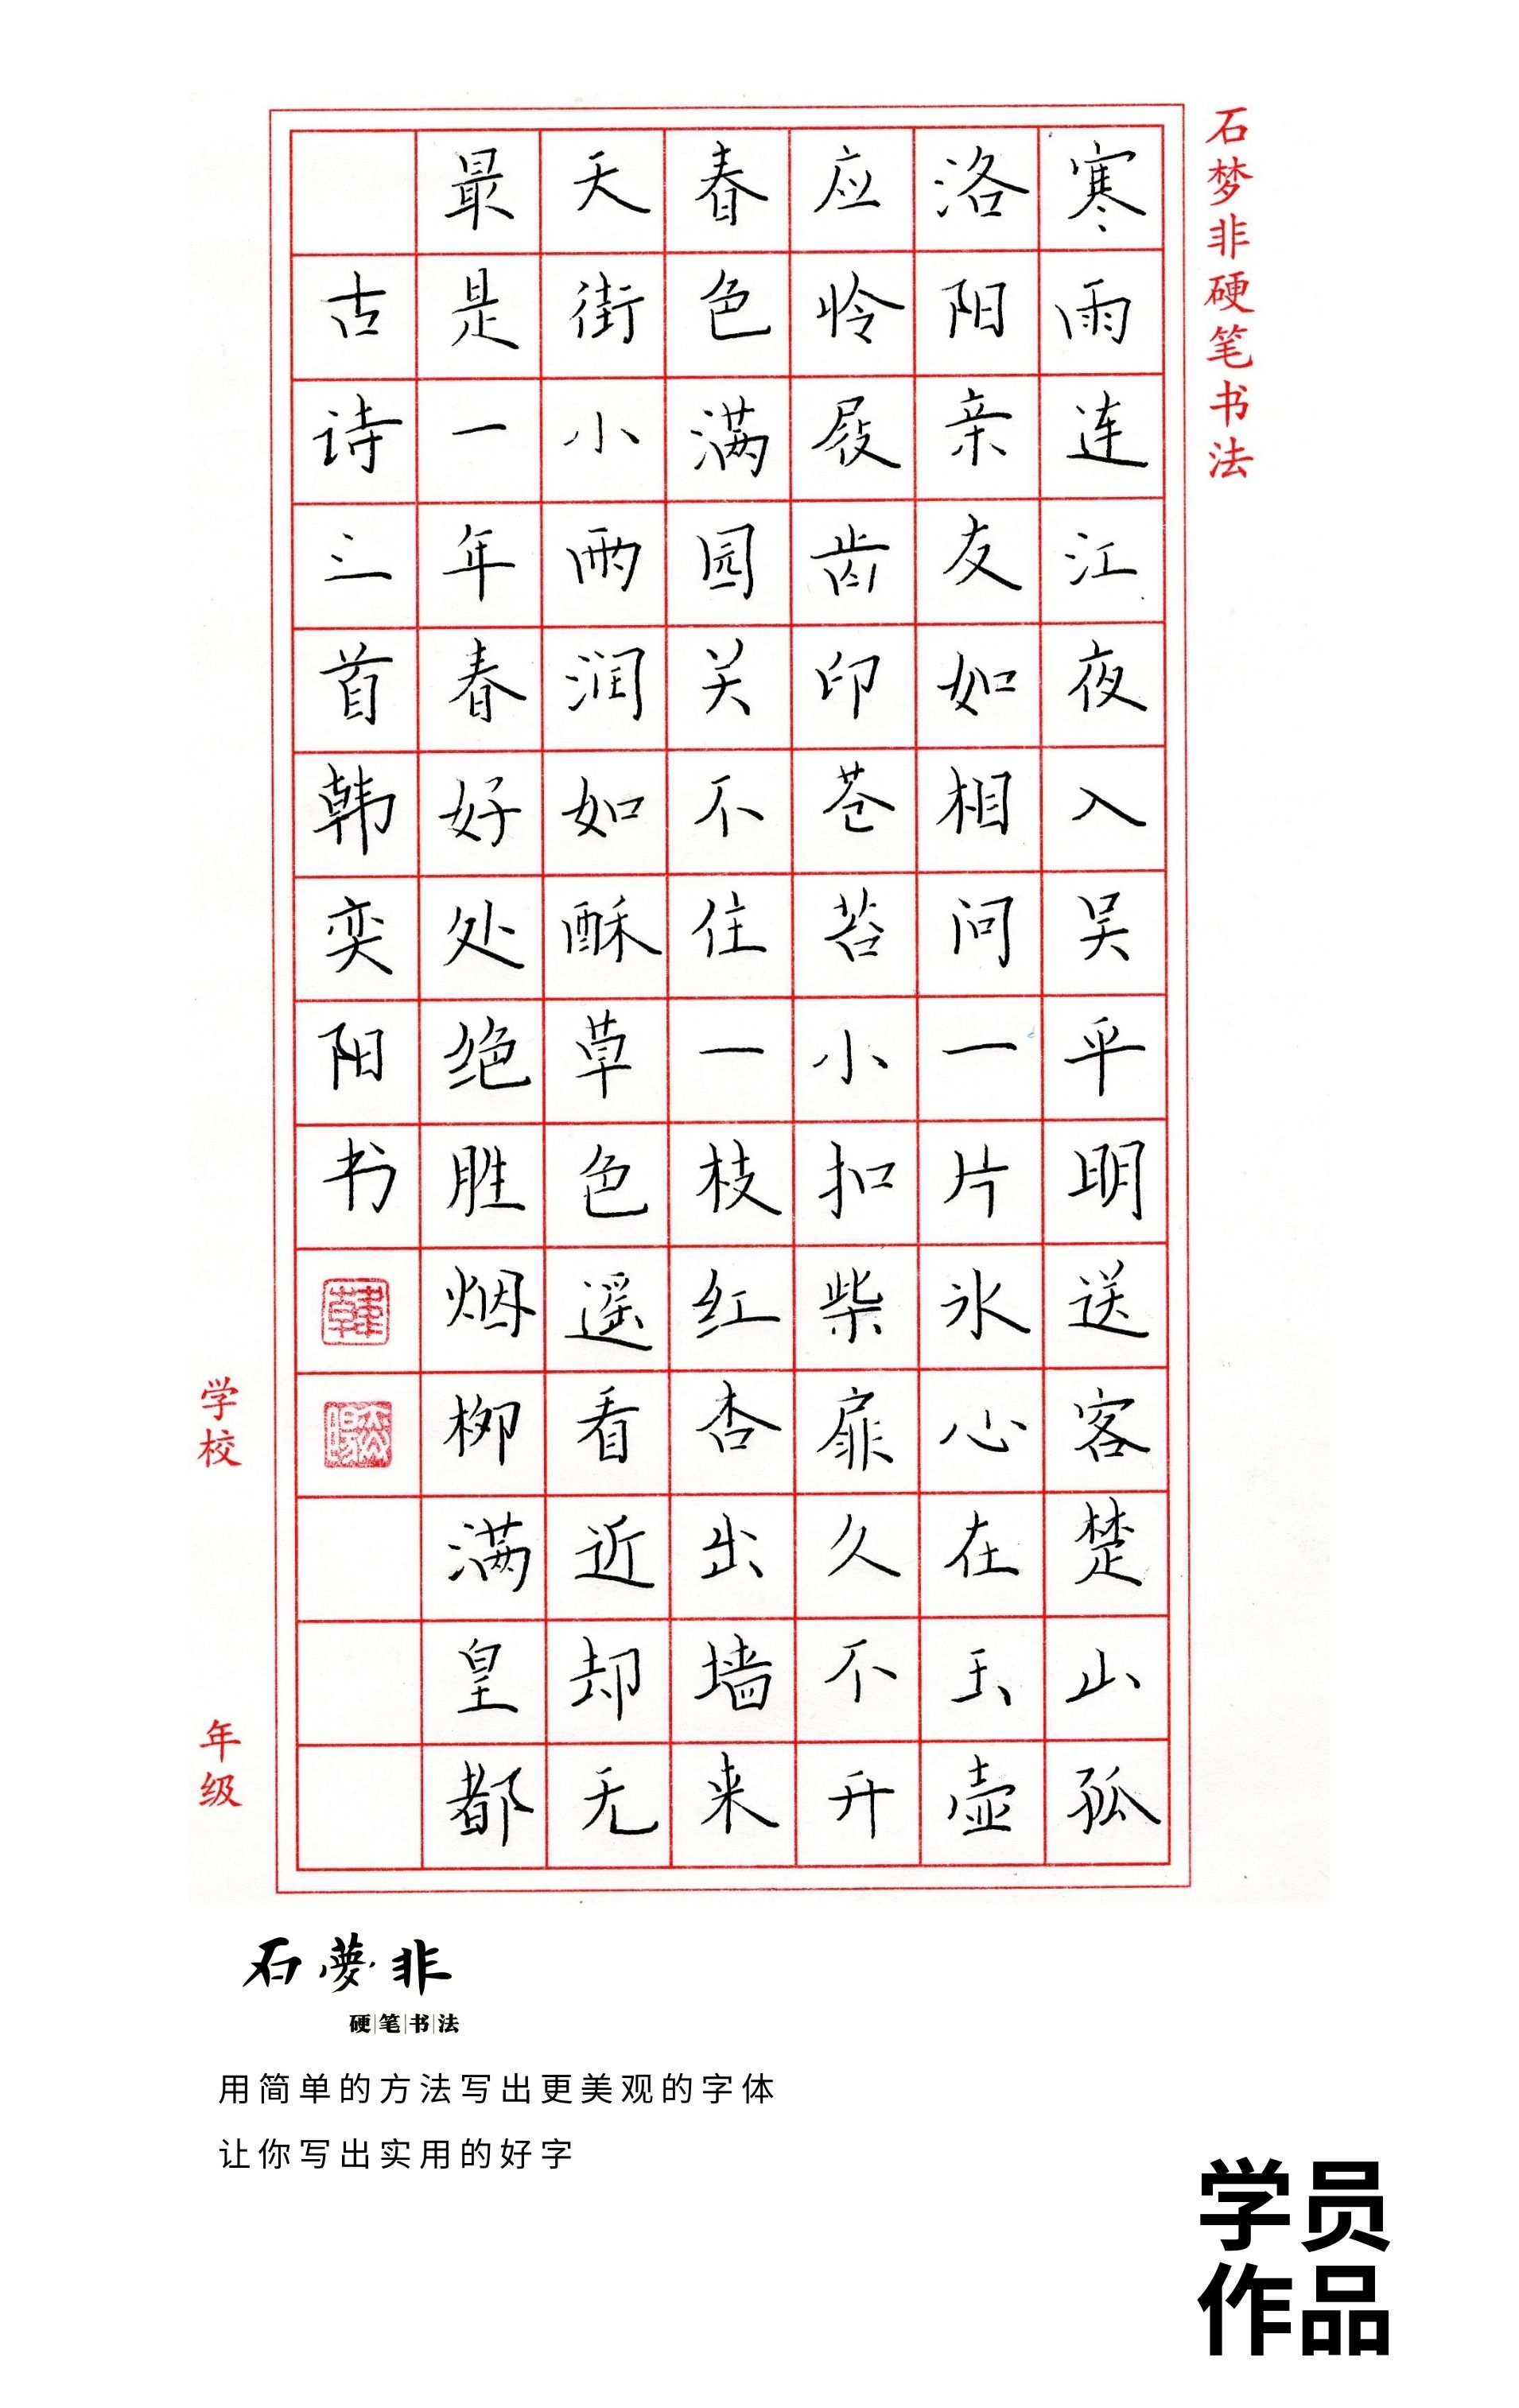 石梦非硬笔书法
寒雨连江夜入吴平明送客楚山孤
洛阳亲友如相问一片冰心在玉壶
应怜屐齿印苍苔小扣柴扉久不开
春色满园关不住一枝红杏出墙来
天街小雨润如酥草色遥看近却无
最是一年春好处绝胜烟柳满皇都
古诗三首韩奕阳书
韩
奕阳
学校
年级
石夢非
硬笔书法
用简单的方法写出更美观的字体
让你写出实用的好字
学员
作品